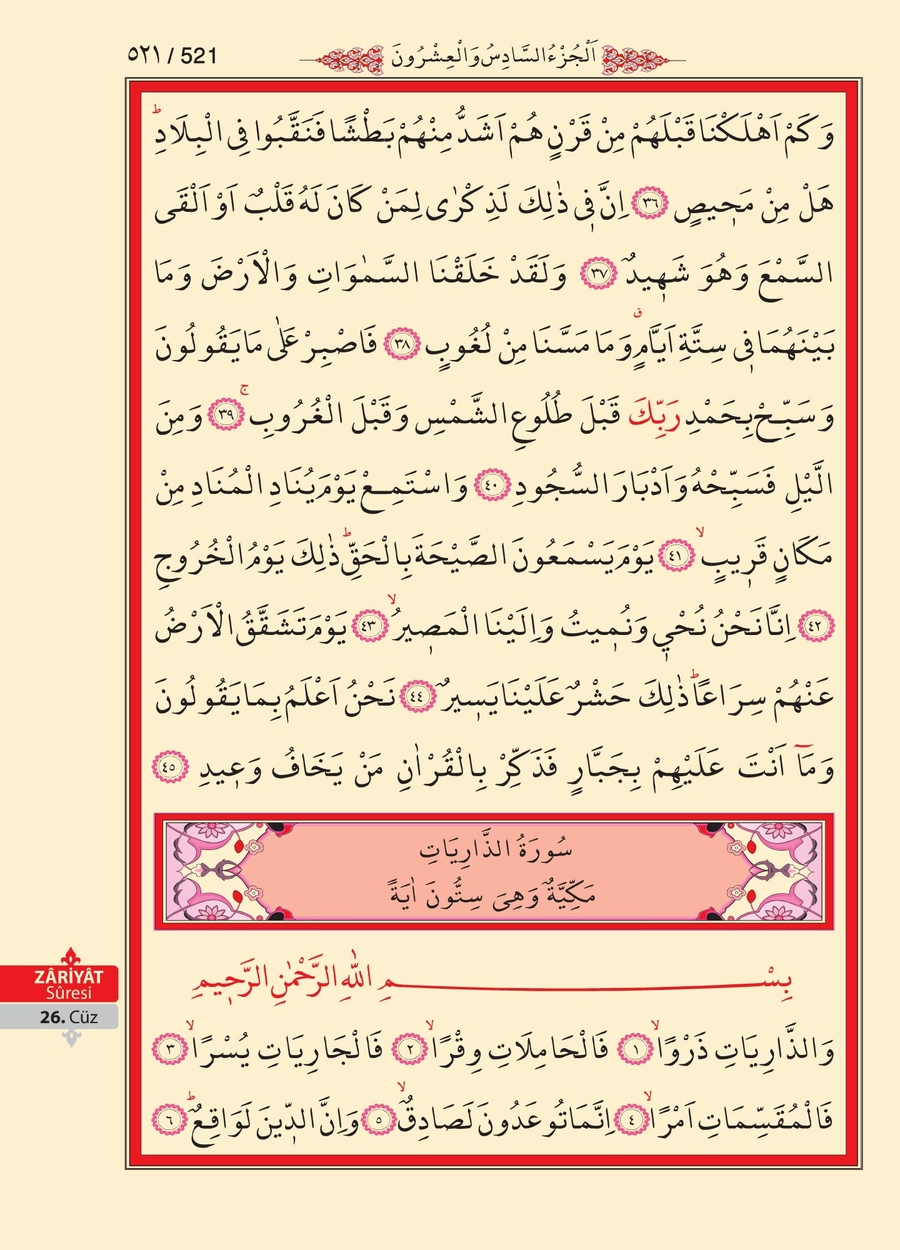 ٥٢١ / 521
اَلْجُزْءُ السَّادِسُ وَالْعِشْرُونَ
وَكَمْ اَهْلَكْنَا قَبْلَهُمْ مِنْ قَرْنٍ هُمْ اَشَدُّ مِنْهُمْ بَطْشًا فَنَقَّبُوا فِي الْبِلَادِۜ
هَلْ مِنْ مَح۪يصٍ ﴿٣٦﴾ اِنَّ ف۪ي ذٰلِكَ لَذِكْرٰى لِمَنْ كَانَ لَهُ قَلْبٌ اَوْ اَلْقَى
السَّمْعَ وَهُوَ شَه۪يدٌ ﴿٣٧﴾ وَلَقَدْ خَلَقْنَا السَّمٰوَاتِ وَالْاَرْضَ وَمَا
بَيْنَهُمَا ف۪ي سِتَّةِ اَيَّامٍۗ وَمَا مَسَّنَا مِنْ لُغُوبٍ ﴿٣٨﴾ فَاصْبِرْ عَلٰى مَا يَقُولُونَ
وَسَبِّحْ بِحَمْدِ رَبِّكَ قَبْلَ طُلُوعِ الشَّمْسِ وَقَبْلَ الْغُرُوبِۚ ﴿٣٩﴾ وَمِنَ
الَّيْلِ فَسَبِّحْهُ وَاَدْبَارَ السُّجُودِ ﴿٤٠﴾ وَاسْتَمِعْ يَوْمَ يُنَادِ الْمُنَادِ مِنْ
مَكَانٍ قَر۪يبٍۙ ﴿٤١﴾ يَوْمَ يَسْمَعُونَ الصَّيْحَةَ بِالْحَقِّۜ ذٰلِكَ يَوْمُ الْخُرُوجِ
﴿٤٢﴾ اِنَّا نَحْنُ نُحْي۪ وَنُم۪يتُ وَاِلَيْنَا الْمَص۪يرُۙ ﴿٤٣﴾ يَوْمَ تَشَقَّقُ الْاَرْضُ
عَنْهُمْ سِرَاعًاۜ ذٰلِكَ حَشْرٌ عَلَيْنَا يَس۪يرٌ ﴿٤٤﴾ نَحْنُ اَعْلَمُ بِمَا يَقُولُونَ
وَمَٓا اَنْتَ عَلَيْهِمْ بِجَبَّارٍ فَذَكِّرْ بِالْقُرْاٰنِ مَنْ يَخَافُ وَع۪يدِ ﴿٤٥﴾
سُورَةُ الذَّارِيَاتِ
مَكِّيَّةٌ وَهِيَ سِتُّونَ اٰيَةً
بِسْمِ اللّٰهِ الرَّحْمٰنِ الرَّح۪يمِ
وَالذَّارِيَاتِ ذَرْوًاۙ ﴿١﴾ فَالْحَامِلَاتِ وِقْرًاۙ ﴿٢﴾ فَالْجَارِيَاتِ يُسْرًاۙ ﴿٣﴾
فَالْمُقَسِّمَاتِ اَمْرًاۙ ﴿٤﴾ اِنَّمَا تُوعَدُونَ لَصَادِقٌۙ ﴿٥﴾ وَاِنَّ الدّ۪ينَ لَوَاقِعٌۜ ﴿٦﴾
ZÂRİYÂT
Sûresi
26. Cüz